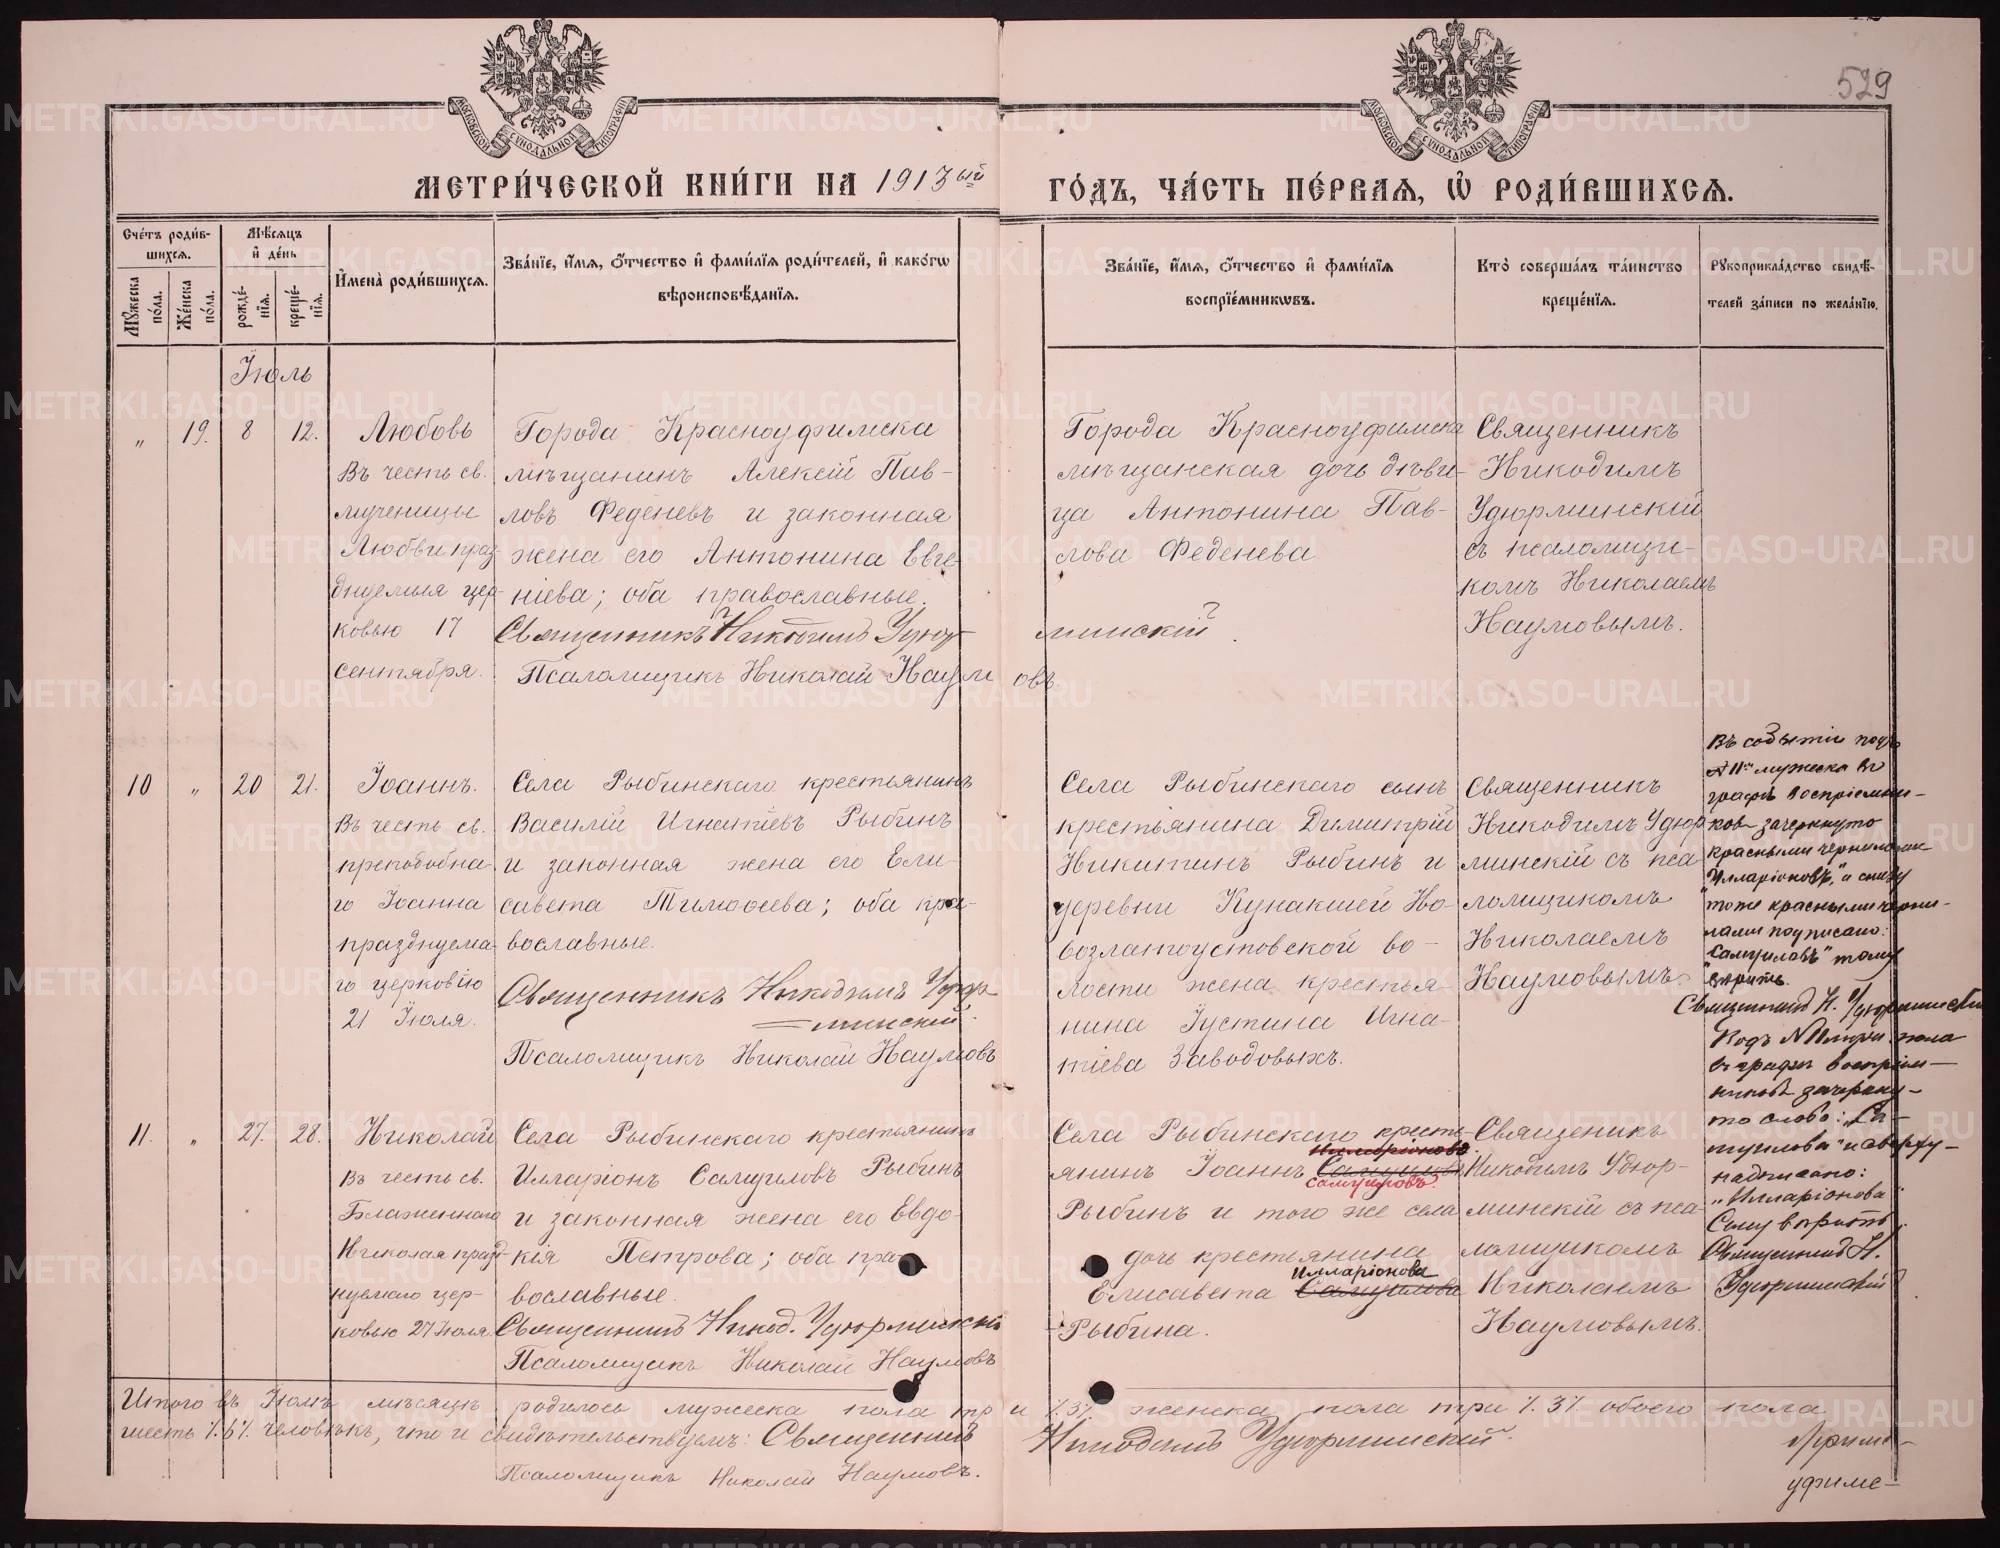 529
МОСКОВСКОЙ СѴНОДАЛЬНОЙ ТИПОГРАФІИ
МОСКОВСКОЙ СѴНОДАЛЬНОЙ ТИПОГРАФІИ
МЕТРИ́ЧЕСКОЙ КНИ́ГИ НА 1913ый ГО́ДЪ, ЧА́СТЬ ПЕ́РВАѦ, Ѽ РОДИ́ВШИХСѦ.
Сче́тъ роди́в-
шихсѧ.
Мꙋжеска по́ла.
Же́нска по́ла.
Мѣ́сѧцъ
и҆ де́нь
рожде́-
нїѧ.
креще́-
нїѧ.
И҆мена̀ роди́вшихсѧ.
Зва́нїе, и҆́мѧ, ѻ҆́тчество и҆ фами́лїѧ роди́телей, и҆ како́гѡ
вѣроисповѣ́данїѧ.
Зва́нїе, и҆́мѧ, ѻ҆́тчество и҆ фами́лїѧ
воспрїе́мникѡвъ.
Кто̀ соверша́лъ та́инство
креще́нїѧ.
Рꙋкоприкла́дство свидѣ́-
телей за́писи по жела́нїю.
Іюль
„ 19. 8 12.
Любовь
Въ честь св.
мученицы
Любви праз-
днуемыя цер-
ковью 17
сентября.
Города Красноуфимска
мѣщанинъ Алексій Пав-
ловъ Феденевъ и законная
жена его Антонина Евге-
ніева; оба православные.
Священникъ Никодимъ Удюрминскій.
Псаломщикъ Николай Наумовъ.
Города Красноуфимска
мѣщанская дочь дѣви-
ца Антонина Пав-
лова Феденева
Священникъ
Никодимъ
Удюрминскій
съ псаломщи-
комъ Николаемъ
Наумовымъ.
10 „ 20 21.
Іоаннъ.
Въ честь св.
преподобна-
го Іоанна
празднуема-
го церковію
21 Іюля.
Села Рыбинскаго крестьянинъ
Василій Игнатіевъ Рыбинъ
и законная жена его Ели-
савета Тимоѳеева; оба пра-
вославные.
Священникъ Никодимъ Удюр-
минскій.
Псаломщикъ Николай Наумовъ
Села Рыбинскаго сынъ
крестьянина Димитрій
Никитинъ Рыбинъ и
деревни Кунакшей Но-
возлатоустовской во-
лости жена крестья-
нина Іустина Игна-
тіева Заводовыхъ.
Священникъ
Никодимъ Удюр
минскій съ пса
ломщикомъ
Николаемъ
Наумовымъ.
Въ событіи подъ
№ 11м мужеска въ
графѣ воспріемни-
ковъ зачеркнуто
красными чернилами
„Илларіоновъ“, и снизу
тоже красными черни-
лами подписано:
„Самуиловъ“ тому
вѣрить.
Священникъ Н. Удюрминскій
Подъ № 11 муж. пола
въ графѣ воспріем-
никовъ зачеркну-
то слово: „Са-
муилова“ и сверху
надписано:
„Илларіонова“.
Сему вѣрить.
Священникъ Н.
Удюрминскій
11. „ 27. 28.
Николай
Въ честь св.
Блаженнаго
Николая празд-
нуемаго цер-
ковью 27 Іюля.
Села Рыбинскаго крестьянинъ
Илларіонъ Самуиловъ Рыбинъ
и законная жена его Евдо-
кія Петрова; оба пра-
вославные.
Священникъ Никод. Удюрминскій
Псаломщикъ Николай Наумовъ
Села Рыбинскаго кресть-
Илларіоновъ
янинъ Іоаннъ Самуиловъ
Самуиловъ.
Рыбинъ и того же села
дочь крестьянина
Илларіонова
Елисавета Самуилова
Рыбина.
Священикъ
Никодимъ Удюр-
минскій съ пса-
ломщикомъ
Николаемъ
Наумовымъ.
Итого въ Іюлѣ мѣсяцѣ родилось мужеска пола три ٪3٪ женска пола три ٪3٪ обоего пола
шесть ٪6٪ человѣкъ, что и свидѣтельствуемъ: Священникъ Никодимъ Удюрминскій.
Псаломщикъ Николай Наумовъ.
METRIKI.GASO-URAL.RU